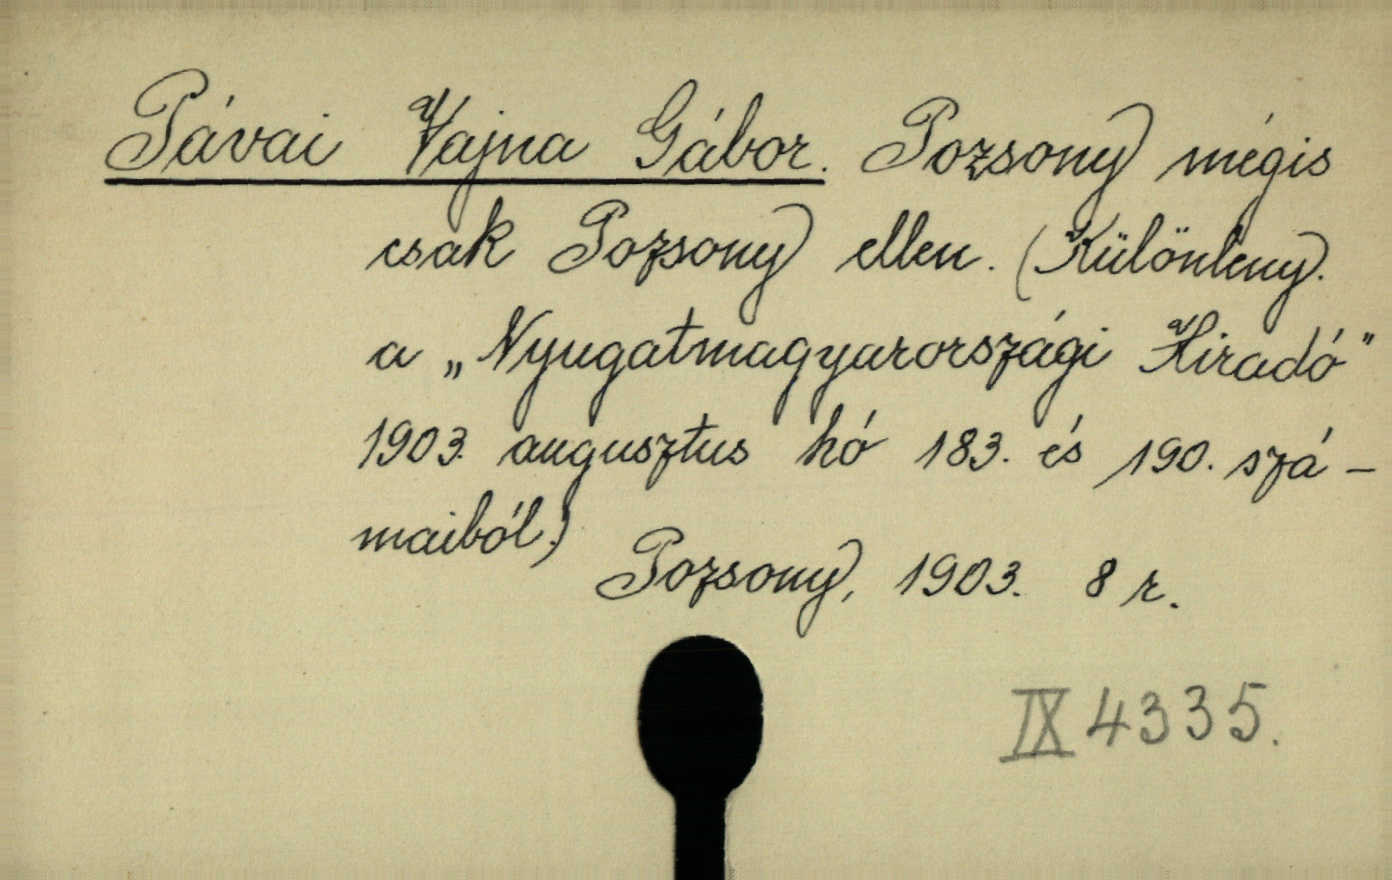 Pávai Vajna Gábor. Pozsony mégis
csak Pozsony ellen. (Különleny.
a „Nyugatmagyarországi Hiradó"
1903. augusztus hó 183. és 190. szá-
maiból.)
Pozsony, 1903. 8 r.
IX 4335.